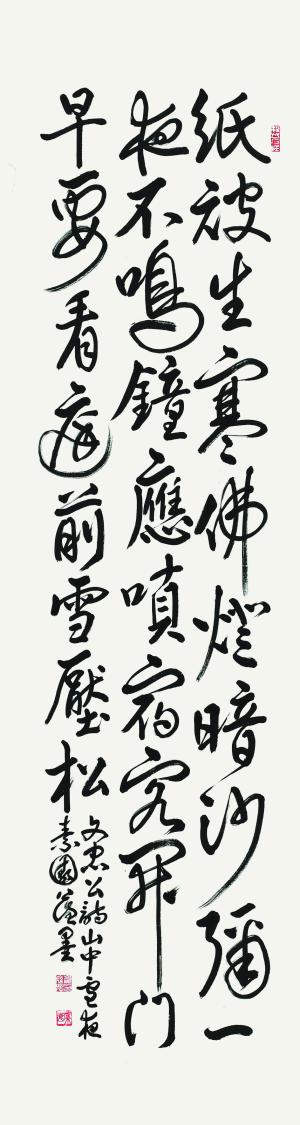 紙被生寒佛燈暗沙彌一
夜不鳴鐘應嗔宿客開門
早要看庭前雪壓松
文忠公詩山中雪夜
素園墨